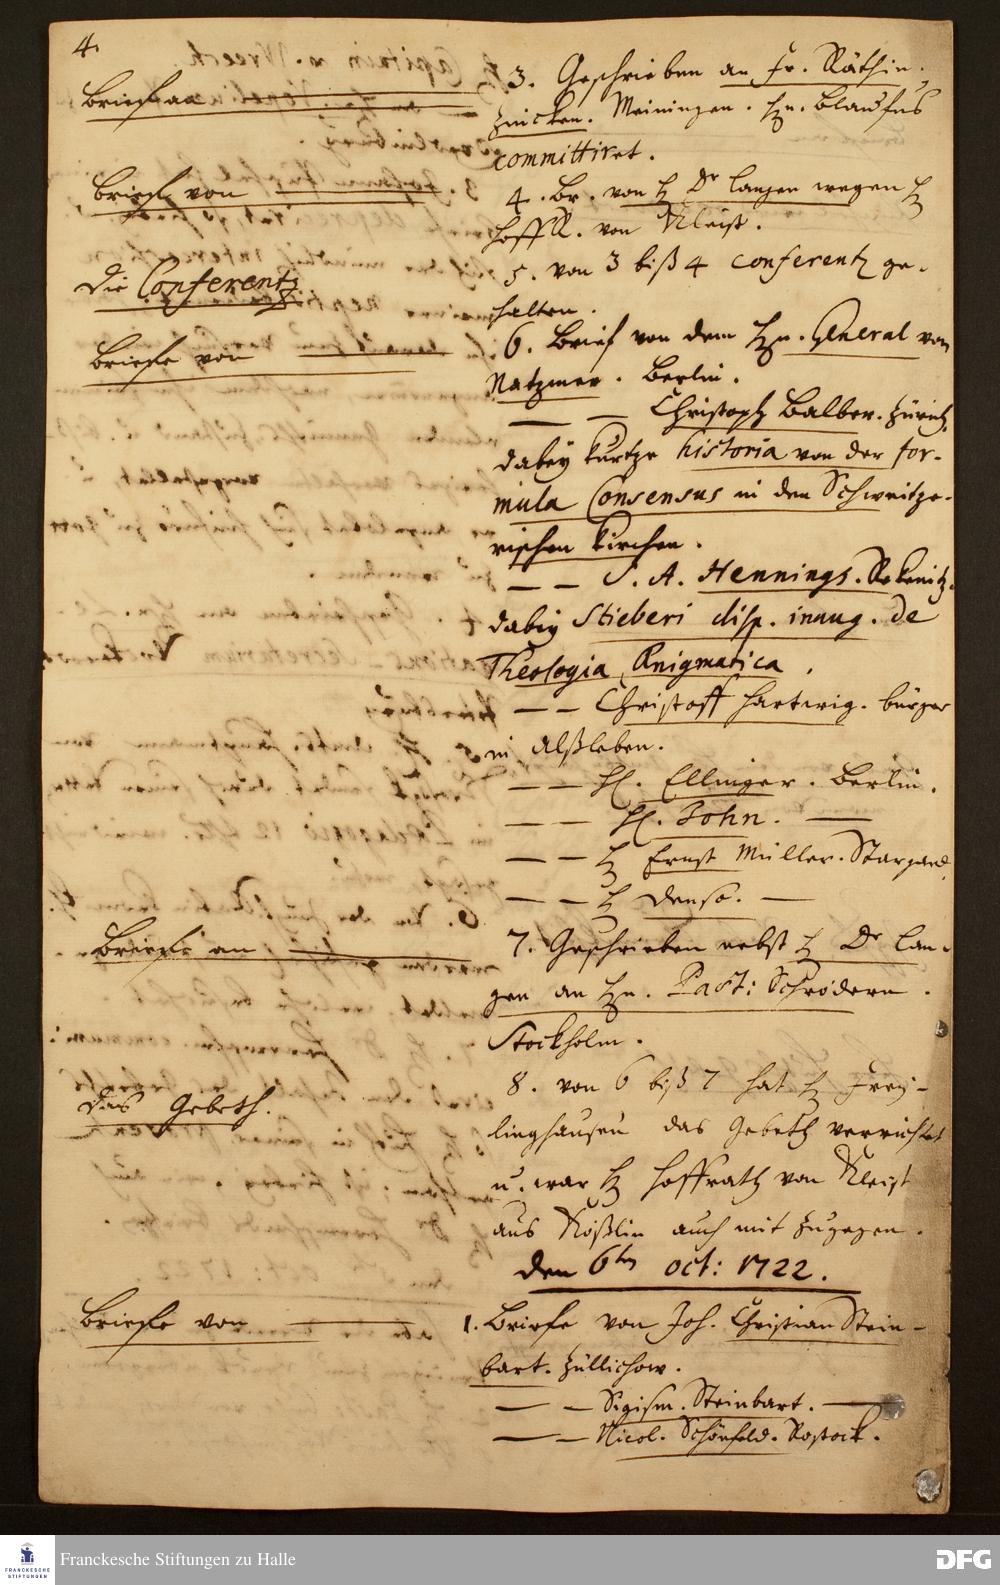 4.
Briefe an
3. Geschrieben an Fr. Räthin
Zuicken. Meiningen. Hn. Blaufus
committiret.
Briefe von
4. Br. von H Dr Langen wegen H
HoffR. von Kleist.
Die Conferentz
5. von 3 biß 4 conferentz ge-
halten.
Briefe von
6. Brief von dem Hn. General von
Natzmer. Berlin.
— — Christoph Balber. Zürich.
dabey kurtze historia von der for-
mula Consensus in den Schweitze-
rischen Kirchen.
— — J. A. Hennings. Rekenitz.
dabey Stieberi disp. inaug. de
Theologia Ænigmatica.
— — Christoff Hartwig. bürger
in Alßleben.
— — H. Ellinger. Berlin.
— — H. John. —
— — H Ernst Müller. Stargard.
— — H Denso. —
Briefe an
7. Geschrieben nebst H Dr Lan-
gen an Hn. Past: Schrödern.
Stockholm.
Das Gebeth.
8. von 6 biß 7 hat H Frey-
linghausen das Gebeth verrichtet
u. war H Hoffrath von Kleist
aus Kößlin auch mit zugegen.
den 6ten oct: 1722.
Briefe von
1. Briefe von Joh. Christian Stein-
bart. Züllichow.
— — Sigism. Steinbart. —
— — Nicol. Schönfeld. Rostock.
FRANCKESCHE
STIFTUNGEN
Franckesche Stiftungen zu Halle
DFG